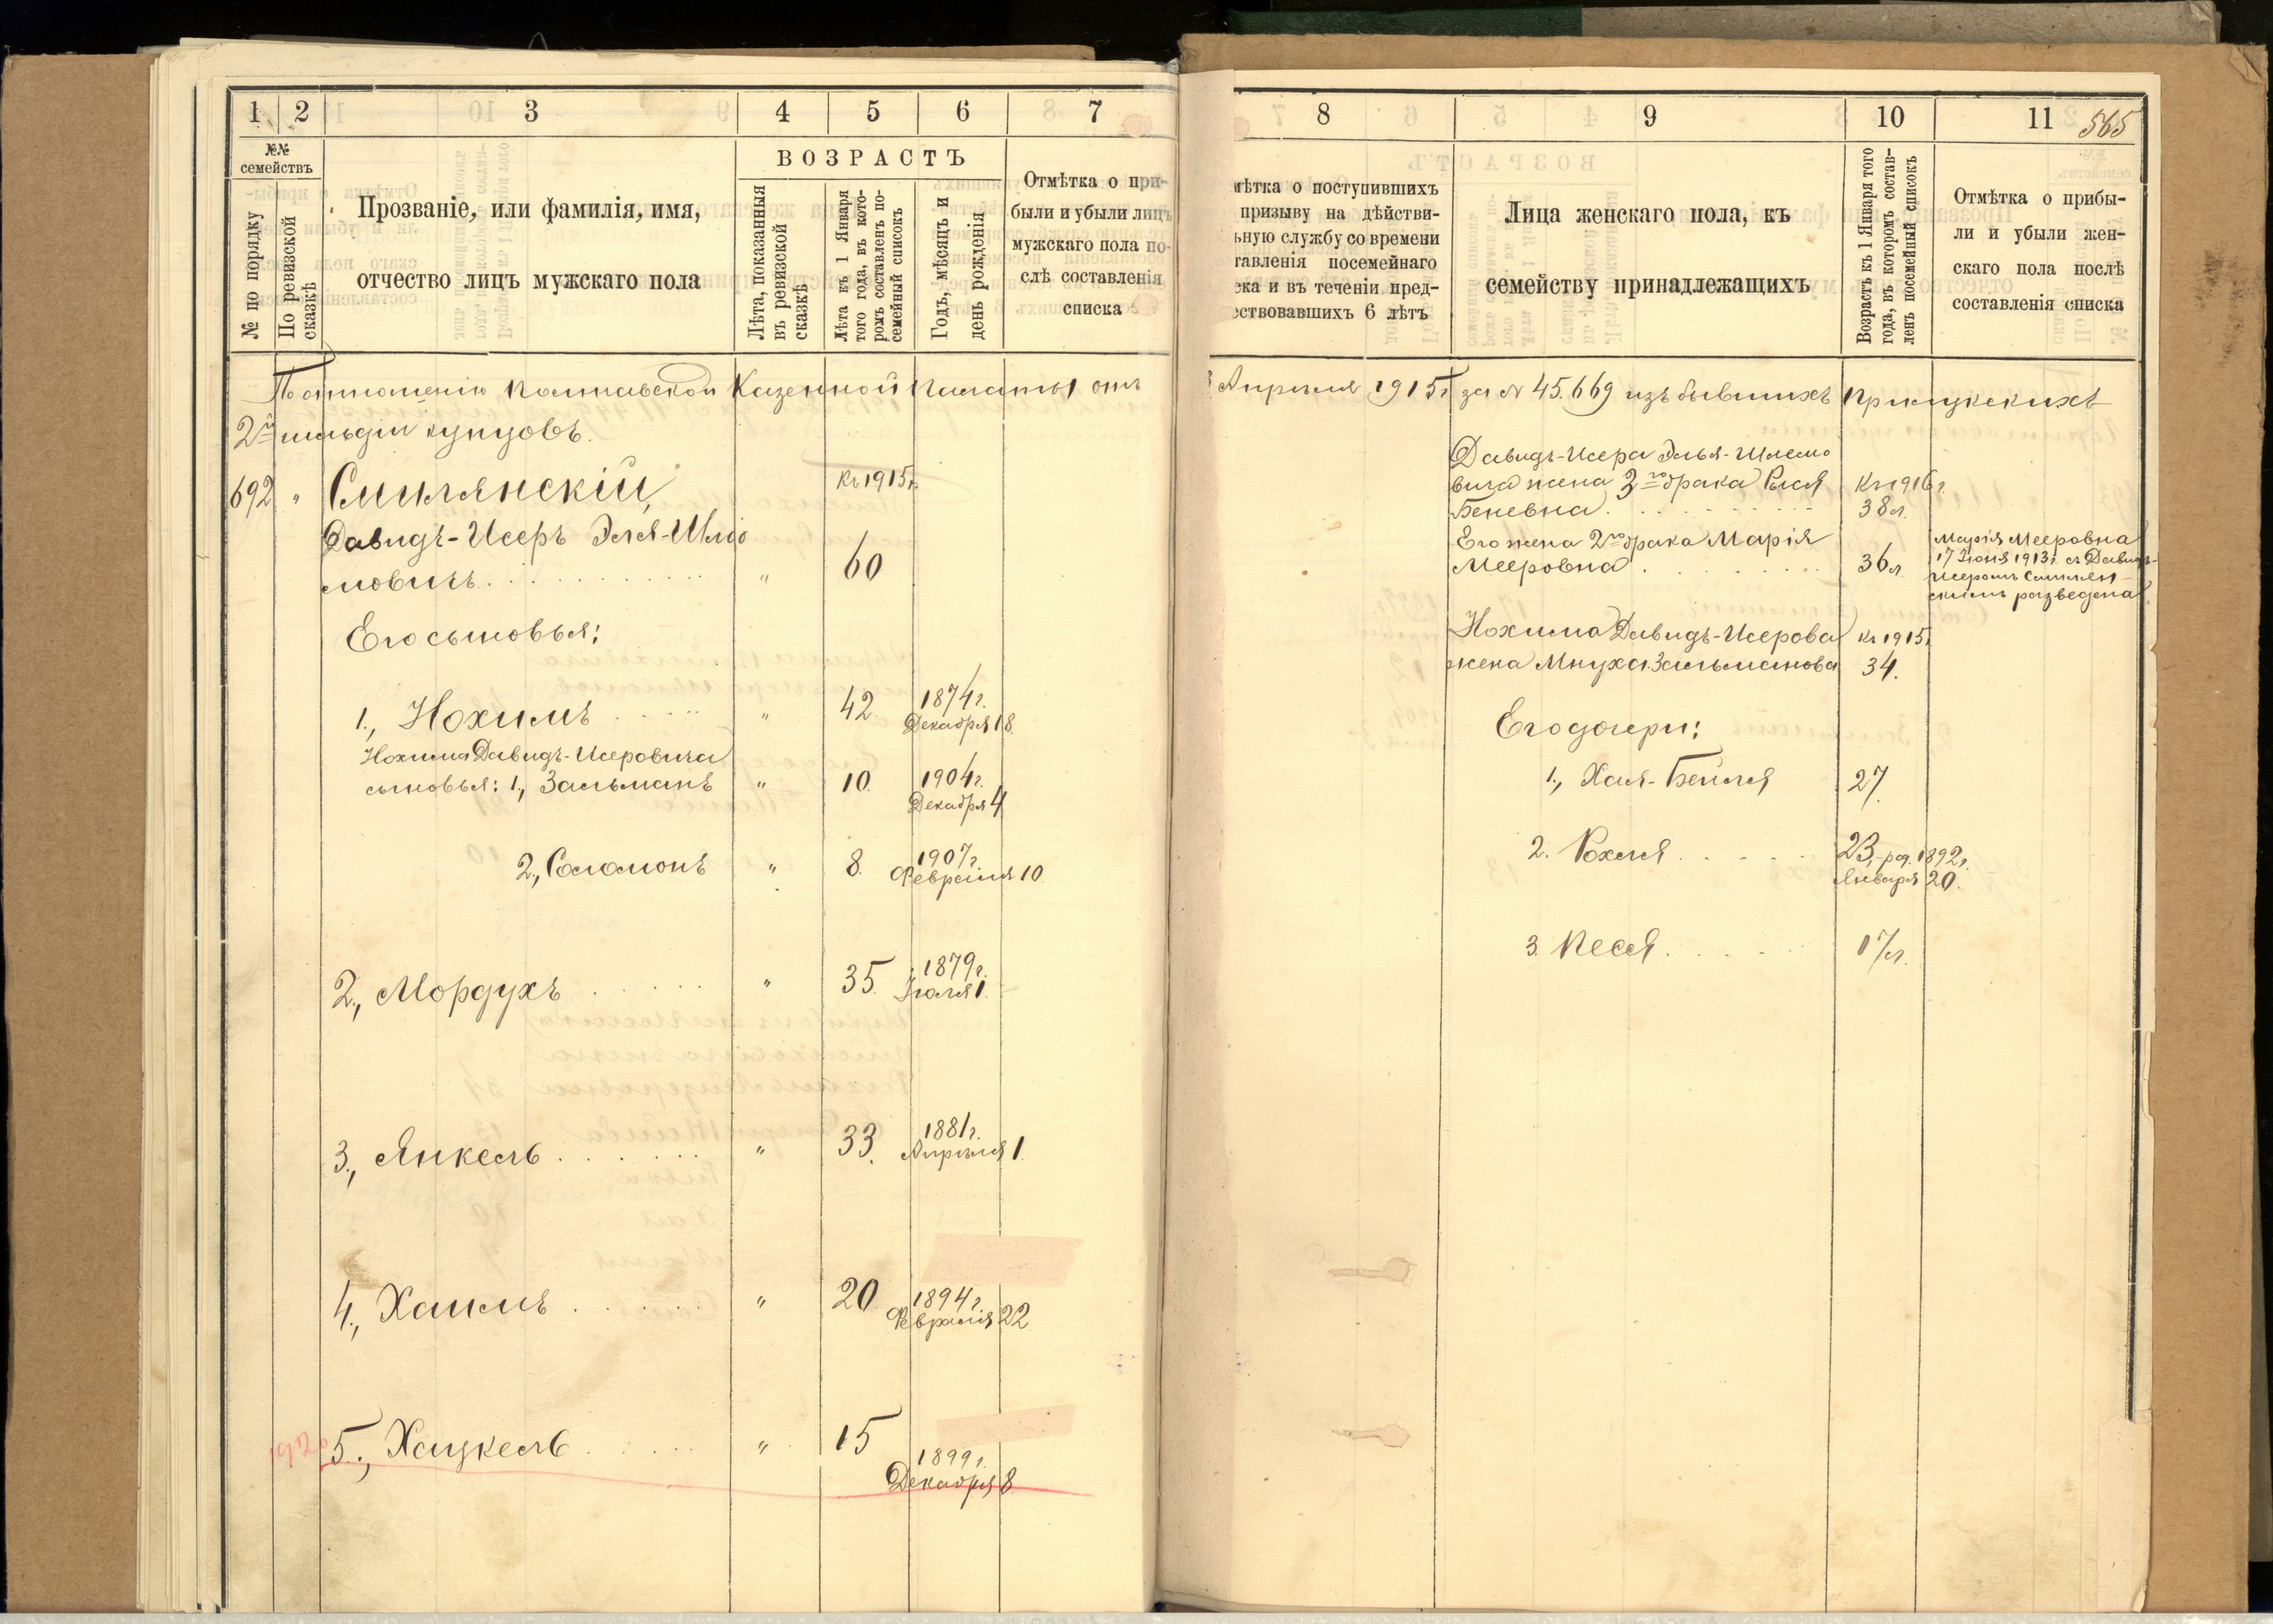 1 2 3 4 5 6 7
№№ семействъ
№ по порядку
По ревизской сказкѣ
Прозваніе, или фамилія, имя,
отчество лицъ мужскаго пола
ВОЗРАСТЪ
Лѣта, показанныя въ ревизской сказкѣ
Лѣта къ 1 Января того года, въ кото-ромъ составленъ по-семейный списокъ
Годъ, мѣсяцъ и день рожденія
Отмѣтка о при-
были и убыли лицъ
мужскаго пола по-
слѣ составленія
списка
По отношенію Полтавской Казенной Палаты отъ
2й гильдіи купцовъ.
692 " Смилянскій, къ 1915г.
Давидъ-Исеръ Эля-Шлио
мовичъ " 60
Его сыновья:
1., Нохимъ " 42 1874г.
Декабря 18
Нохима Давидъ-Исеровича
сыновья: 1., Зальманъ " 10. 1904г.
Декабря 4
2., Соломонъ " 8. 1907г.
Февраля 10
2., Мордухъ " 35. 1879г.
Іюля 1.
3., Янкель " 33. 1881г.
Апрѣля 1.
4., Хаимъ " 20 1894г.
Февраля 22
1920 5., Хацкель " 15 1899г.
Декабря 8
8 9 10 11 565
мѣтка о поступившихъ
призыву на дѣйстви-
ьную службу со времени
тавленія посемейнаго
ска и въ теченіи пред-
ествовавшихъ 6 лѣтъ
Лица женскаго пола, къ
семейству принадлежащихъ
Возрастъ къ 1 Января того года, въ которомъ состав-ленъ посемейный списокъ
Отмѣтка о прибы-
ли и убыли жен-
скаго пола послѣ
составленія списка
Апрѣля 1915г. за № 45.669 изъ бывшихъ Прилукскихъ
Давидъ-Исера Элья-Шлемо
вича жена 3го брака Рися къ 1916г.
Беневна. 38л.
Его жена 2го брака Марія
Мееровна 36л.
Марія Мееровна
17 Іюня 1913г. съ Давидъ-
Исеромъ Смилян-
скимъ разведена
Нохима Давидъ-Исерова къ 1915г.
жена Мнуха Зальманова 34.
Его дочери:
1., Хая-Бейля 27.
2. Рохля 23, род. 1892г.
Января 20.
3. Песся 17л.